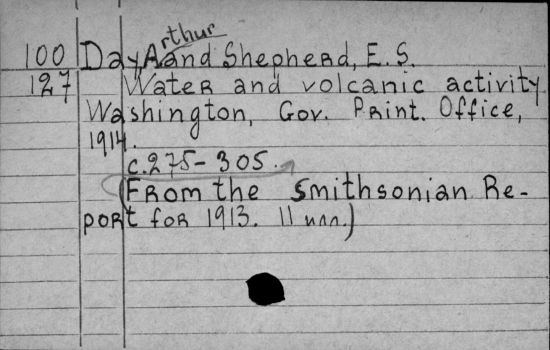 100 Day A rthur and Shepherd, E. S.
127 Water and volcanic activity
Washington, Gov. Print. Office,
1914.
c.275-305.
(From the Smithsonian Re-
port for 1913. 11 илл.)